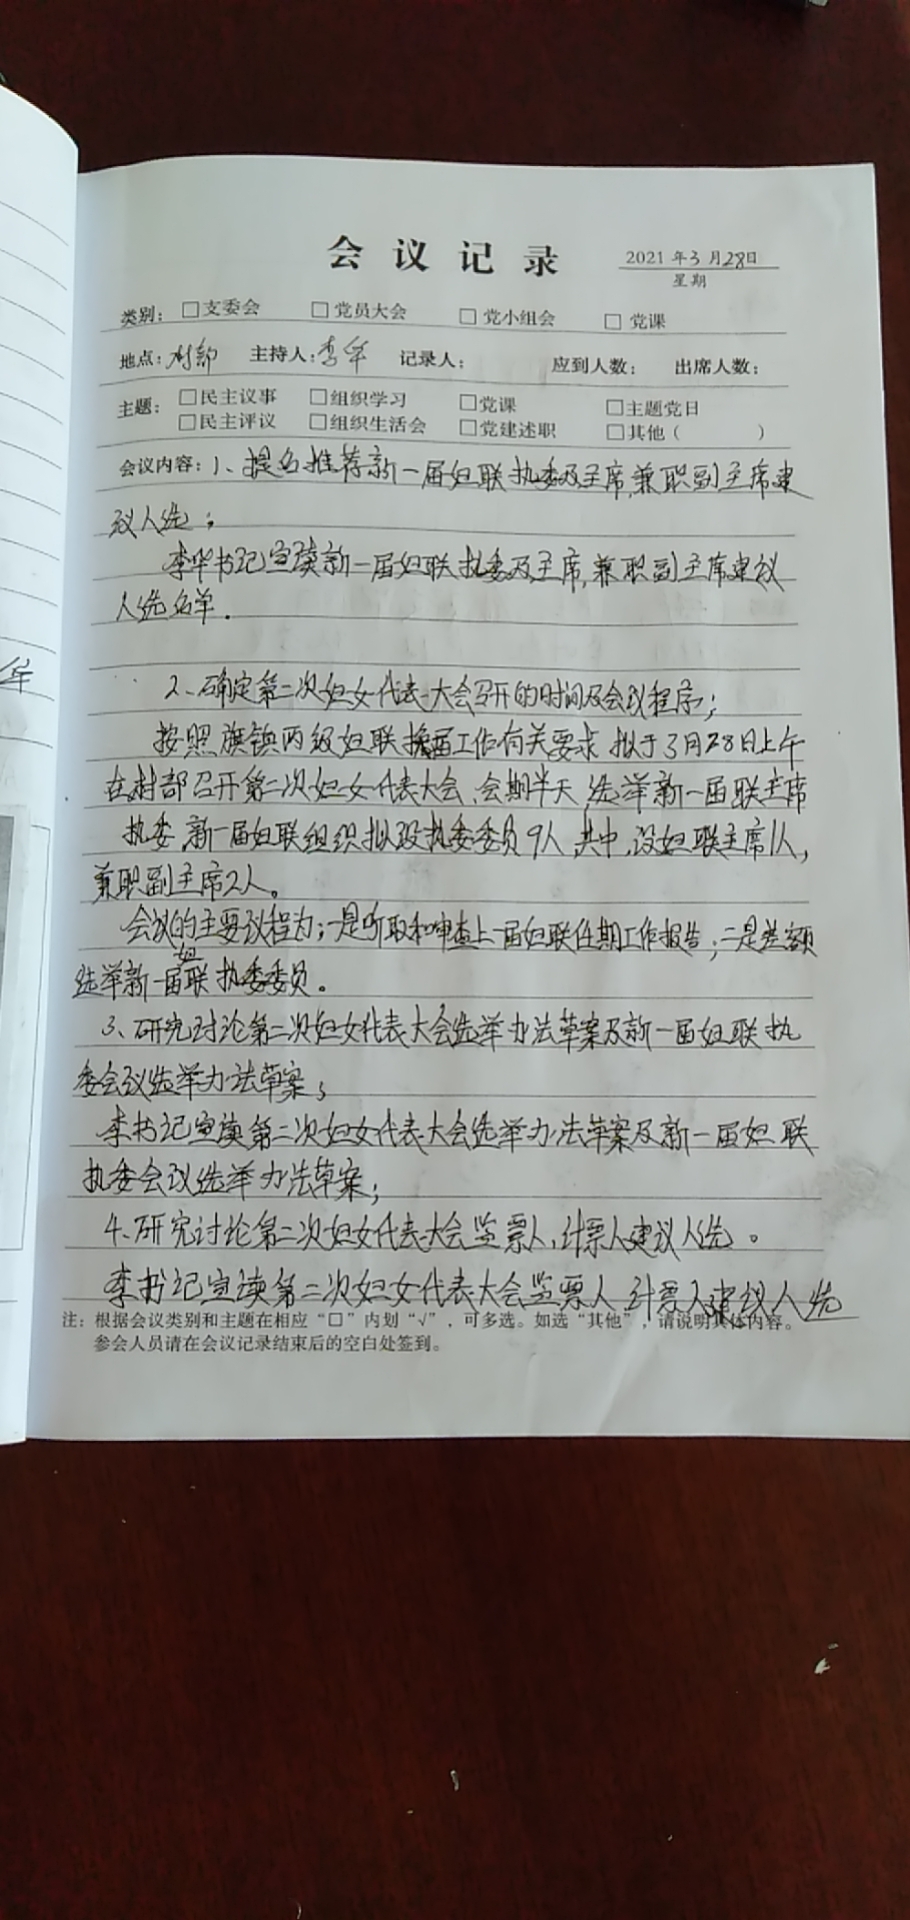 会议记录
2021年3月28日
星期
类别：□支委会 □党员大会 □党小组会 □党课
地点：村部 主持人：李华 记录人： 应到人数： 出席人数：
主题：□民主议事 □组织学习 □党课 □主题党日
□民主评议 □组织生活会 □党建述职 □其他（ ）
会议内容：1、提名推荐新一届妇联执委及主席，兼职副主席建
议人选；
李华书记宣读新一届妇联执委及主席，兼职副主席建议
人选名单．
2、确定第二次妇女代表大会召开的时间及会议程序；
按照旗镇两级妇联换届工作有关要求 拟于3月28日上午
在村部召开第二次妇女代表大会、会期半天，选举新一届联主席
执委，新一届妇联组织拟设执委委员9人，其中，设妇联主席1人，
兼职副主席2人。
会议的主要议程为；一是听取和审查上一届妇联任期工作报告；二是差额
选举新一届妇联执委委员。
3、研究讨论第二次妇女代表大会选举办法草案及新一届妇联执
委会议选举办法草案；
李书记宣读第二次妇女代表大会选举办法草案及新一届妇联
执委会议选举办法草案；
4、研究讨论第二次妇女代表大会监票人，计票人建议人选。
李书记宣读第二次妇女代表大会监票人，计票人建议人选
注：根据会议类别和主题在相应“□”内划“√”，可多选。如选“其他”，请说明具体内容。
参会人员请在会议记录结束后的空白处签到。
华